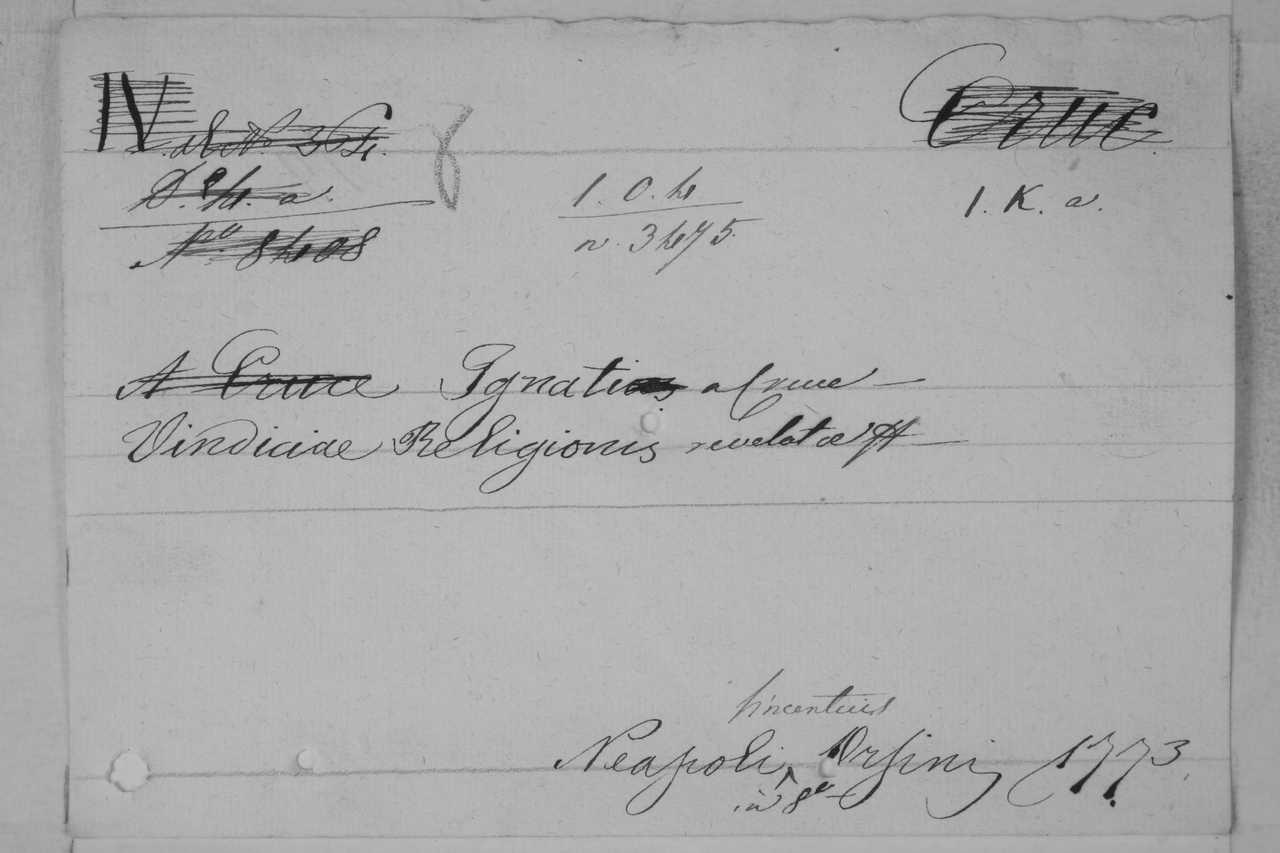 IV
8
Cruce
1. O. 4
n. 3475.
1. K. a.
A Cruce Ignatius a Cruce —
Vindiciae Religionis revelatae
Vincentius
Neapoli, Ursini 1773.
in 8o